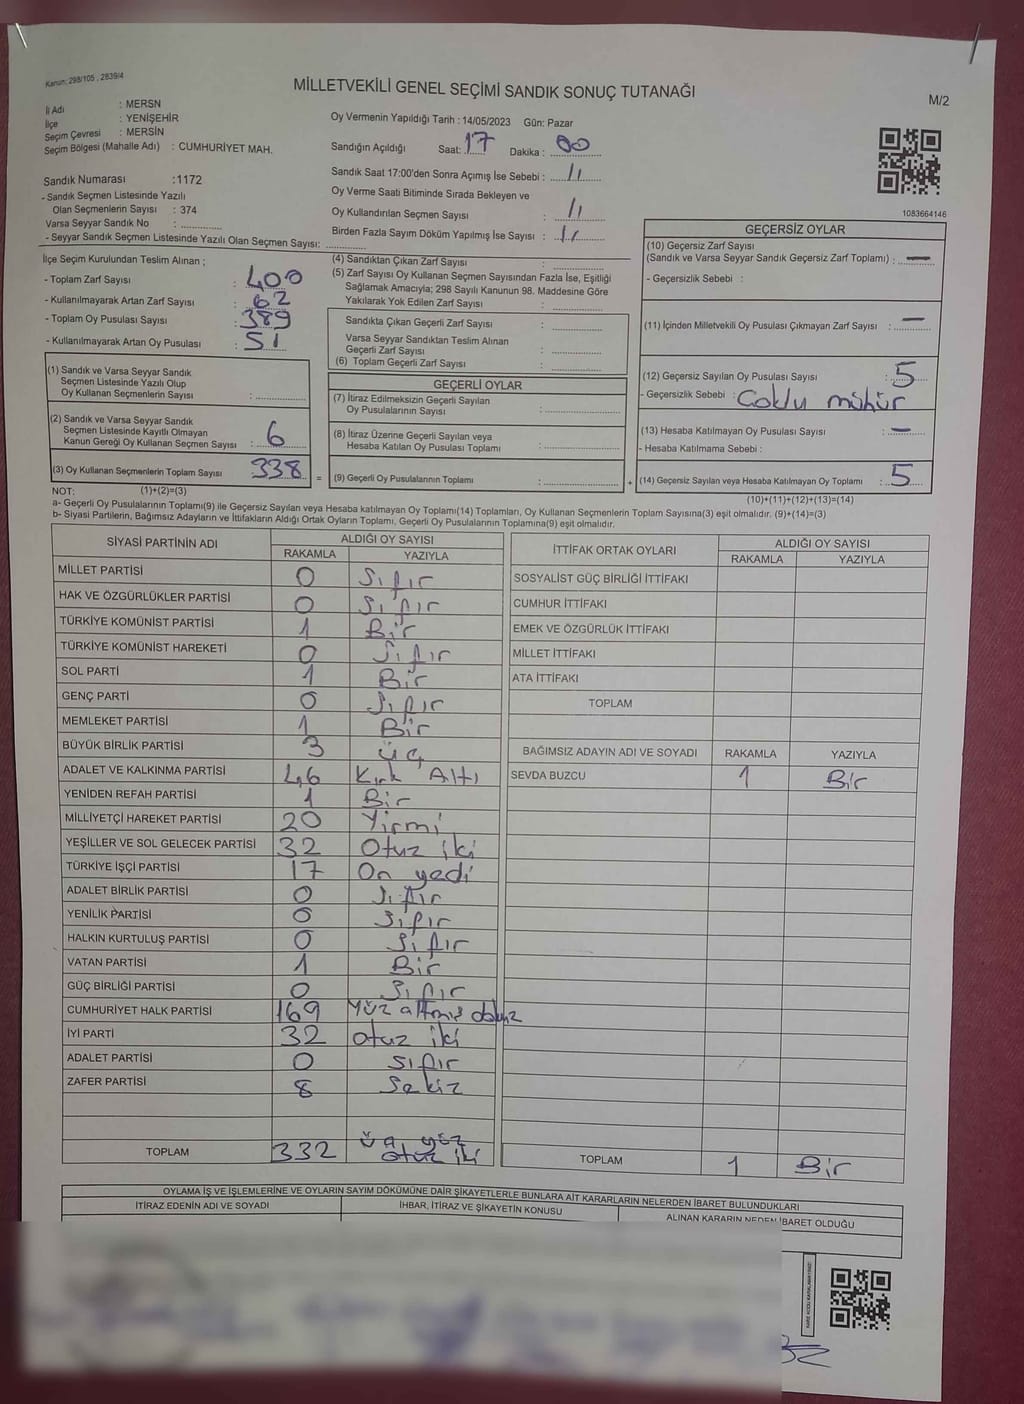 Kanun: 298/105 , 2839/4
MİLLETVEKİLİ GENEL SEÇİMİ SANDIK SONUÇ TUTANAĞI
M/2
İl Adı : MERSN
İlçe : YENİŞEHİR
Seçim Çevresi : MERSİN
Seçim Bölgesi (Mahalle Adı) : CUMHURİYET MAH.
Sandık Numarası :1172
- Sandık Seçmen Listesinde Yazılı
Olan Seçmenlerin Sayısı : 374
Varsa Seyyar Sandık No : ..............
- Seyyar Sandık Seçmen Listesinde Yazılı Olan Seçmen Sayısı: ..............
Oy Vermenin Yapıldığı Tarih : 14/05/2023 Gün: Pazar
Sandığın Açıldığı Saat: 17 Dakika : 00
Sandık Saat 17:00'den Sonra Açımış İse Sebebi : //
Oy Verme Saati Bitiminde Sırada Bekleyen ve
Oy Kullandırılan Seçmen Sayısı : //
Birden Fazla Sayım Döküm Yapılmış İse Sayısı :
1083664146
İlçe Seçim Kurulundan Teslim Alınan ;
- Toplam Zarf Sayısı : 400
- Kullanılmayarak Artan Zarf Sayısı : 62
- Toplam Oy Pusulası Sayısı : 389
- Kullanılmayarak Artan Oy Pusulası : 51
(1) Sandık ve Varsa Seyyar Sandık
Seçmen Listesinde Yazılı Olup
Oy Kullanan Seçmenlerin Sayısı : ..............
(2) Sandık ve Varsa Seyyar Sandık
Seçmen Listesinde Kayıtlı Olmayan
Kanun Gereği Oy Kullanan Seçmen Sayısı : 6
(3) Oy Kullanan Seçmenlerin Toplam Sayısı : 338 =
(4) Sandıktan Çıkan Zarf Sayısı : ..............
(5) Zarf Sayısı Oy Kullanan Seçmen Sayısından Fazla İse, Eşitliği
Sağlamak Amacıyla; 298 Sayılı Kanunun 98. Maddesine Göre
Yakılarak Yok Edilen Zarf Sayısı : ..............
Sandıkta Çıkan Geçerli Zarf Sayısı : ..............
Varsa Seyyar Sandıktan Teslim Alınan
Geçerli Zarf Sayısı : ..............
(6) Toplam Geçerli Zarf Sayısı : ..............
GEÇERLİ OYLAR
(7) İtiraz Edilmeksizin Geçerli Sayılan
Oy Pusulalarının Sayısı : ..............
(8) İtiraz Üzerine Geçerli Sayılan veya
Hesaba Katılan Oy Pusulası Toplamı : ..............
(9) Geçerli Oy Pusulalarının Toplamı : .............. +
GEÇERSİZ OYLAR
(10) Geçersiz Zarf Sayısı
(Sandık ve Varsa Seyyar Sandık Geçersiz Zarf Toplamı) : —
- Geçersizlik Sebebi :
(11) İçinden Milletvekili Oy Pusulası Çıkmayan Zarf Sayısı : —
(12) Geçersiz Sayılan Oy Pusulası Sayısı : 5
- Geçersizlik Sebebi : Çoklu mühür
(13) Hesaba Katılmayan Oy Pusulası Sayısı : —
- Hesaba Katılmama Sebebi :
(14) Geçersiz Sayılan veya Hesaba Katılmayan Oy Toplamı : 5
NOT: (1)+(2)=(3) (10)+(11)+(12)+(13)=(14)
a- Geçerli Oy Pusulalarının Toplamı(9) ile Geçersiz Sayılan veya Hesaba Katılmayan Oy Toplamı(14) Toplamları, Oy Kullanan Seçmenlerin Toplam Sayısına(3) eşit olmalıdır. (9)+(14)=(3)
b- Siyasi Partilerin, Bağımsız Adayların ve İttifakların Aldığı Ortak Oyların Toplamı, Geçerli Oy Pusulalarının Toplamına(9) eşit olmalıdır.
SİYASİ PARTİNİN ADI ALDIĞI OY SAYISI
RAKAMLA YAZIYLA
MİLLET PARTİSİ 0 Sıfır
HAK VE ÖZGÜRLÜKLER PARTİSİ 0 Sıfır
TÜRKİYE KOMÜNİST PARTİSİ 1 Bir
TÜRKİYE KOMÜNİST HAREKETİ 0 Sıfır
SOL PARTİ 1 Bir
GENÇ PARTİ 0 Sıfır
MEMLEKET PARTİSİ 1 Bir
BÜYÜK BİRLİK PARTİSİ 3 üç
ADALET VE KALKINMA PARTİSİ 46 Kırk Altı
YENİDEN REFAH PARTİSİ 1 Bir
MİLLİYETÇİ HAREKET PARTİSİ 20 Yirmi
YEŞİLLER VE SOL GELECEK PARTİSİ 32 Otuz iki
TÜRKİYE İŞÇİ PARTİSİ 17 On yedi
ADALET BİRLİK PARTİSİ 0 Sıfır
YENİLİK PARTİSİ 0 Sıfır
HALKIN KURTULUŞ PARTİSİ 0 Sıfır
VATAN PARTİSİ 1 Bir
GÜÇ BİRLİĞİ PARTİSİ 0 Sıfır
CUMHURİYET HALK PARTİSİ 169 Yüz altmış dokuz
İYİ PARTİ 32 otuz iki
ADALET PARTİSİ 0 Sıfır
ZAFER PARTİSİ 8 Sekiz
TOPLAM 332 üç yüz
otuz iki
İTTİFAK ORTAK OYLARI ALDIĞI OY SAYISI
RAKAMLA YAZIYLA
SOSYALİST GÜÇ BİRLİĞİ İTTİFAKI
CUMHUR İTTİFAKI
EMEK VE ÖZGÜRLÜK İTTİFAKI
MİLLET İTTİFAKI
ATA İTTİFAKI
TOPLAM
BAĞIMSIZ ADAYIN ADI VE SOYADI RAKAMLA YAZIYLA
SEVDA BUZCU 1 Bir
TOPLAM 1 Bir
OYLAMA İŞ VE İŞLEMLERİNE VE OYLARIN SAYIM DÖKÜMÜNE DAİR ŞİKAYETLERLE BUNLARA AİT KARARLARIN NELERDEN İBARET BULUNDUKLARI
İTİRAZ EDENİN ADI VE SOYADI İHBAR, İTİRAZ VE ŞİKAYETİN KONUSU ALINAN KARARIN NEDEN İBARET OLDUĞU